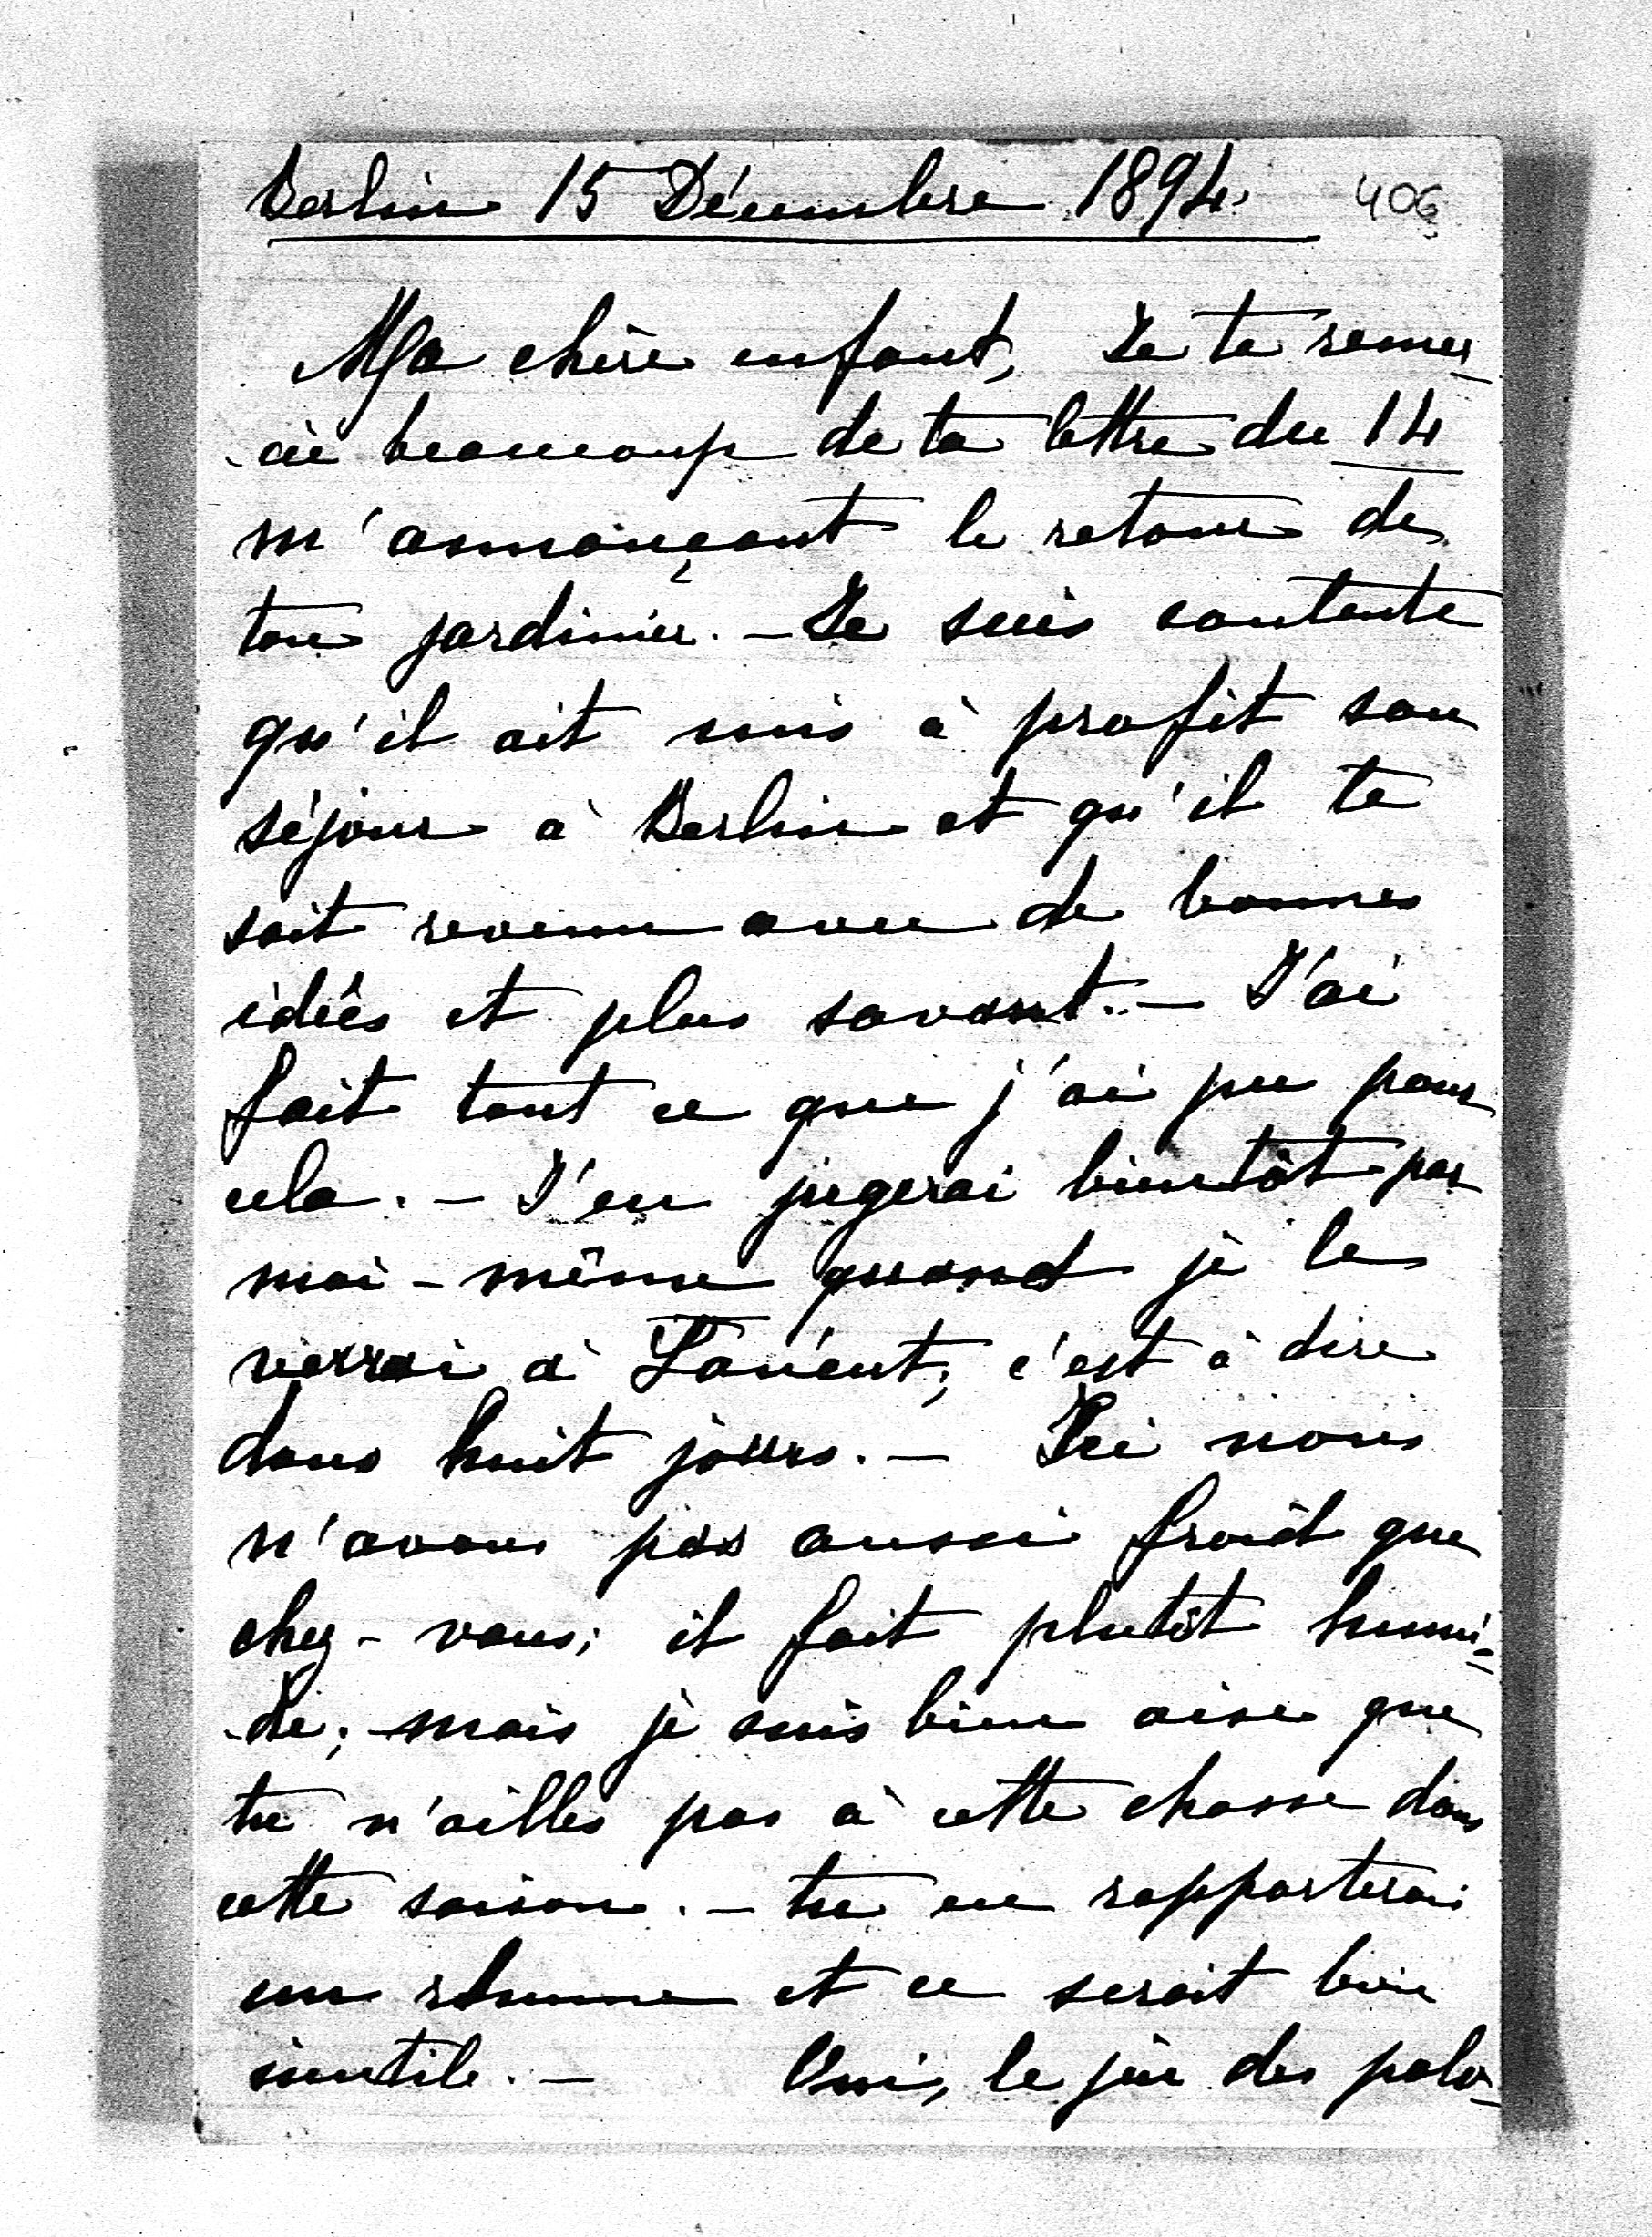 Berlin 15 Décembre 1894. 406
Ma chère enfant, Je te remer-
-cie beaucoup de ta lettre du 14
m'annonçant le retour de
ton jardinier. – Je suis contente
qu'il ait mis à profit son
séjour à Berlin et qu'il te
soit revenu avec de bonnes
idées et plus savant. – J'ai
fait tout ce que j'ai pu pour
cela. – J'en jugerai bientôt par
moi-même quand je le
verrai à l'avent, c'est à dire
dans huit jours. – Ici nous
n'avons pas aussi froid que
chez-vous; il fait plutôt humi-
-de; mais je suis bien aise que
tu n'ailles pas à cette chasse dans
cette saison. – tu en rapporterais
un rhume et ce serait bien
inutile. – Oui, le jeu des polo-